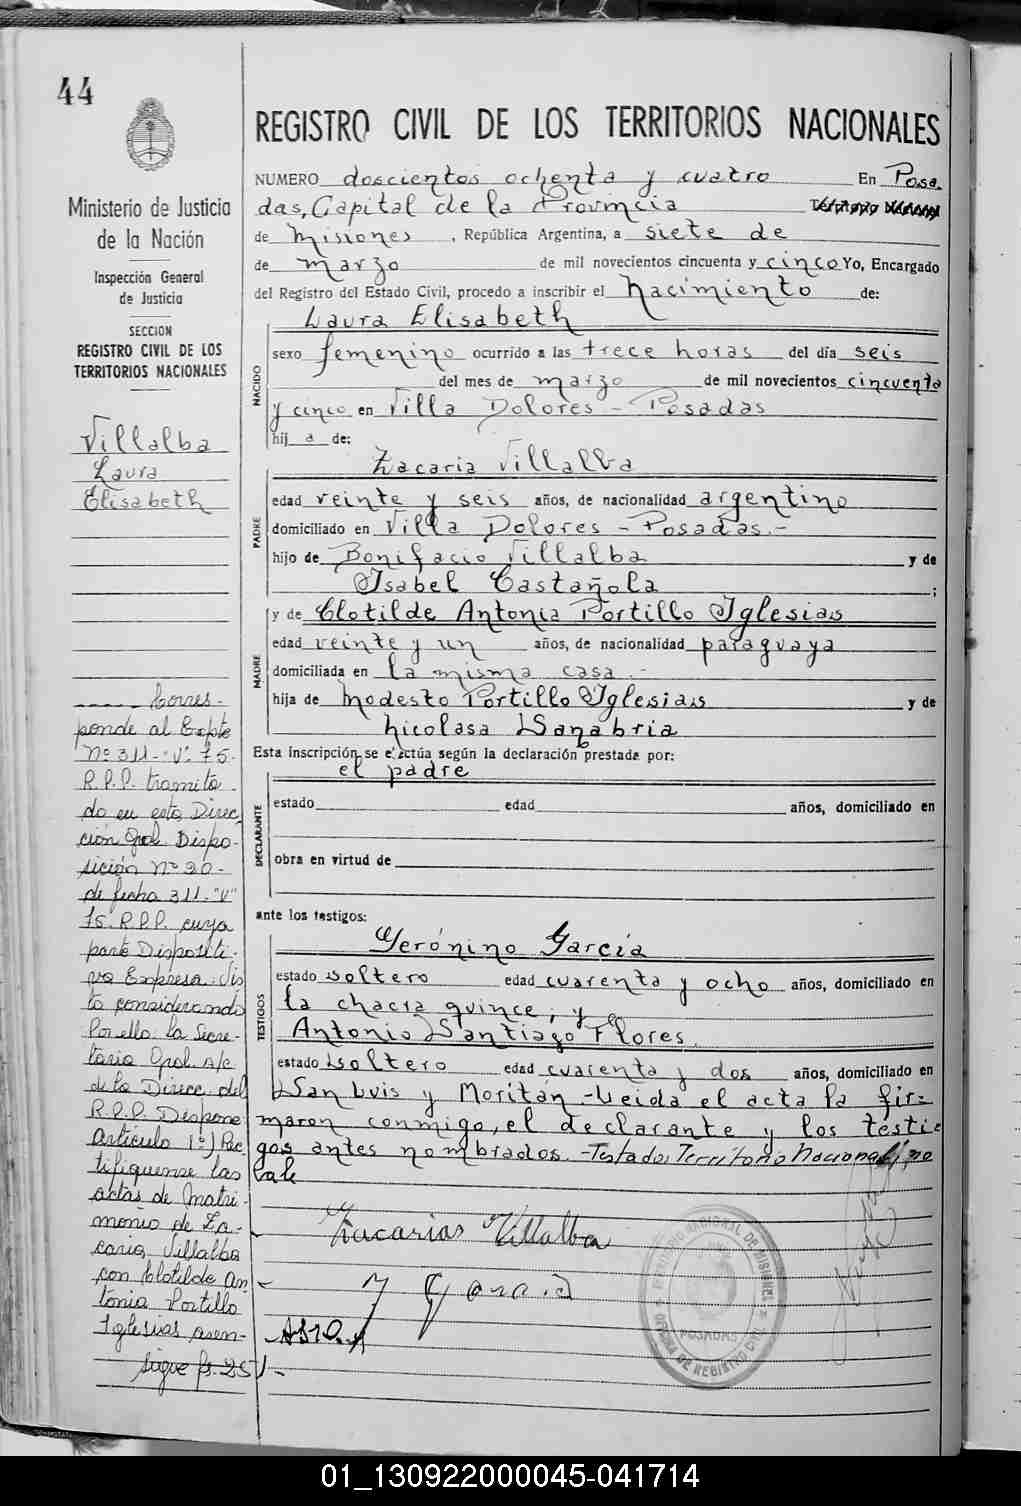 44
Ministerio de Justicia
de la Nación
Inspección General
de Justicia
SECCION
REGISTRO CIVIL DE LOS
TERRITORIOS NACIONALES
Villalba
Laura
Elisabeth
Corres-
ponde al Expte
Nº 311-"V"-75-
R.P.P. tramita
do en esta Direc
ción Gral. Dispo-
sición Nº 20-
de fecha 311-"V"
75. R.P.P. cuya
parte Dispositi-
va Expresa: Vis
to considerando
Por ello: la Secre-
taria Gral. A/c
de la Direcc. del
R.P.P. Dispone
Artículo 1º) Rec
tifiquense las
actas de Matri-
monio de Za-
caria Villalba
con Clotilde An-
tonia Portillo
Iglesias asen-
sigue fs. 251-
REGISTRO CIVIL DE LOS TERRITORIOS NACIONALES
NUMERO doscientos ochenta y cuatro En Posa
das, Capital de la Provincia Territorio Nacional
de Misiones, República Argentina, a siete de
de marzo de mil novecientos cincuenta y cinco Yo, Encargado
del Registro del Estado Civil, procedo a inscribir el nacimiento de:
NACIDO
Laura Elisabeth
sexo femenino ocurrido a las trece horas del día seis
del mes de marzo de mil novecientos cincuenta
y cinco en Villa Dolores - Posadas
hij a de:
PADRE
Zacaria Villalba
edad veinte y seis años, de nacionalidad argentino
domiciliado en Villa Dolores - Posadas.-
hijo de Bonifacio Villalba y de
Isabel Castañola ;
MADRE
y de Clotilde Antonia Portillo Iglesias
edad veinte y un años, de nacionalidad paraguaya
domiciliada en la misma casa.-
hija de Modesto Portillo Iglesias y de
Nicolasa Sanabria
Esta inscripción se efectúa según la declaración prestada por:
DECLARANTE
el padre
estado edad años, domiciliado en
obra en virtud de
ante los testigos:
TESTIGOS
Gerónino García
estado soltero edad cuarenta y ocho años, domiciliado en
la chacra quince, y
Antonio Santiago Flores
estado soltero edad cuarenta y dos años, domiciliado en
San Luis y Moritán - Leida el acta la fir=
maron conmigo, el declarante y los testi=
gos antes nombrados.- Testado, Territorio Nacional, no
vale
Zacarias Villalba
TERRITORIO NACIONAL DE MISIONES
POSADAS
OFICINA DE REGISTRO CIVIL
01_130922000045-041714